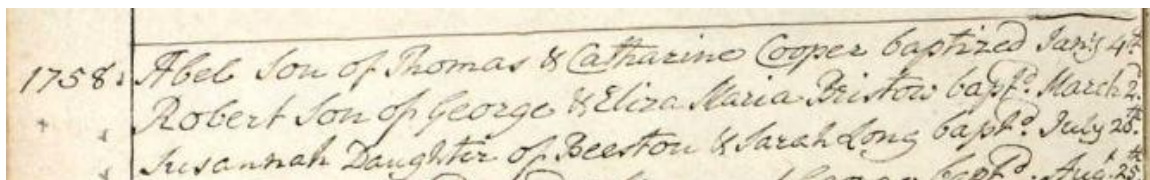 1758. Abel Son of Thomas & Catharine Cooper baptized Jan'y 4th
Robert Son of George & Eliza Maria Bristow bapt'd. March 2.
Susannah Daughter of Beeston & Sarah Long bapt'd. July 26th.
bapt'd. Aug't. 25th